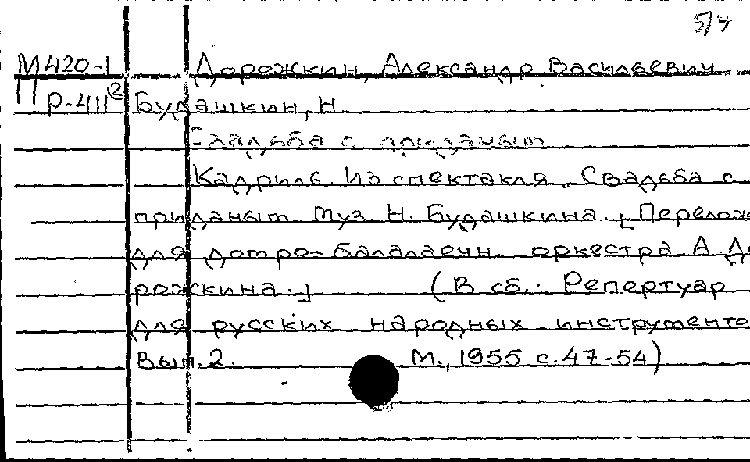 5/4
М420-1 Дорожкин, Александр Васильевич
П р-411 Будашкин, Н.
Свадьба с приданым
Кадриль. Из спектакля. Свадьба с
приданым. Муз. Н. Будашкина. [Перелож
для домро-балалаечн. оркестра А. До
рожкина.] (В сб.: Репертуар
для русских народных инструменто
Вып. 2. М., 1955 с. 47-54)